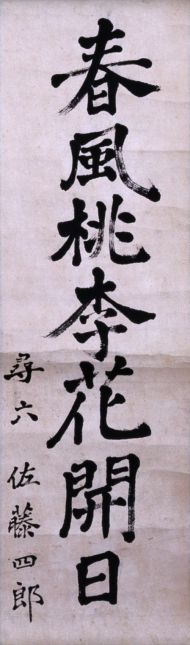 春風桃李花開日
尋六 佐藤四郎